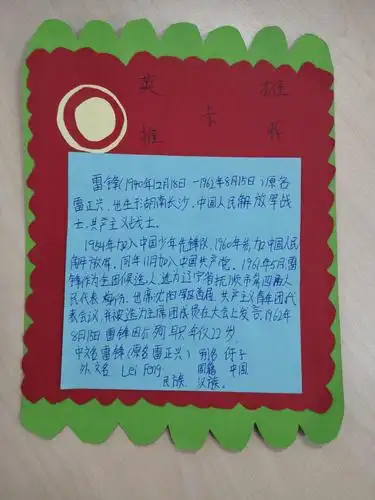 英雄
推卡荐
雷锋(1940年12月18日-1962年8月15日)原名
雷正兴,出生于湖南长沙,中国人民解放军战
士,共产主义战士。
1954年加入中国少年先锋队,1960年参加中国人民
解放军,同年11月加入中国共产党。1961年5月,雷
锋作为主团候选人,选为辽宁省抚顺市第四届人
民代表
出席沈阳军区首届共产主义青年团代
表会议,并被选为主席团成员在大会上发言,1962年
8月15日雷锋因公殉职,年仅22岁
中文名 雷锋(原名雷正兴) 别名
外文名 Lei Feng 国籍 中国
民族 汉族。